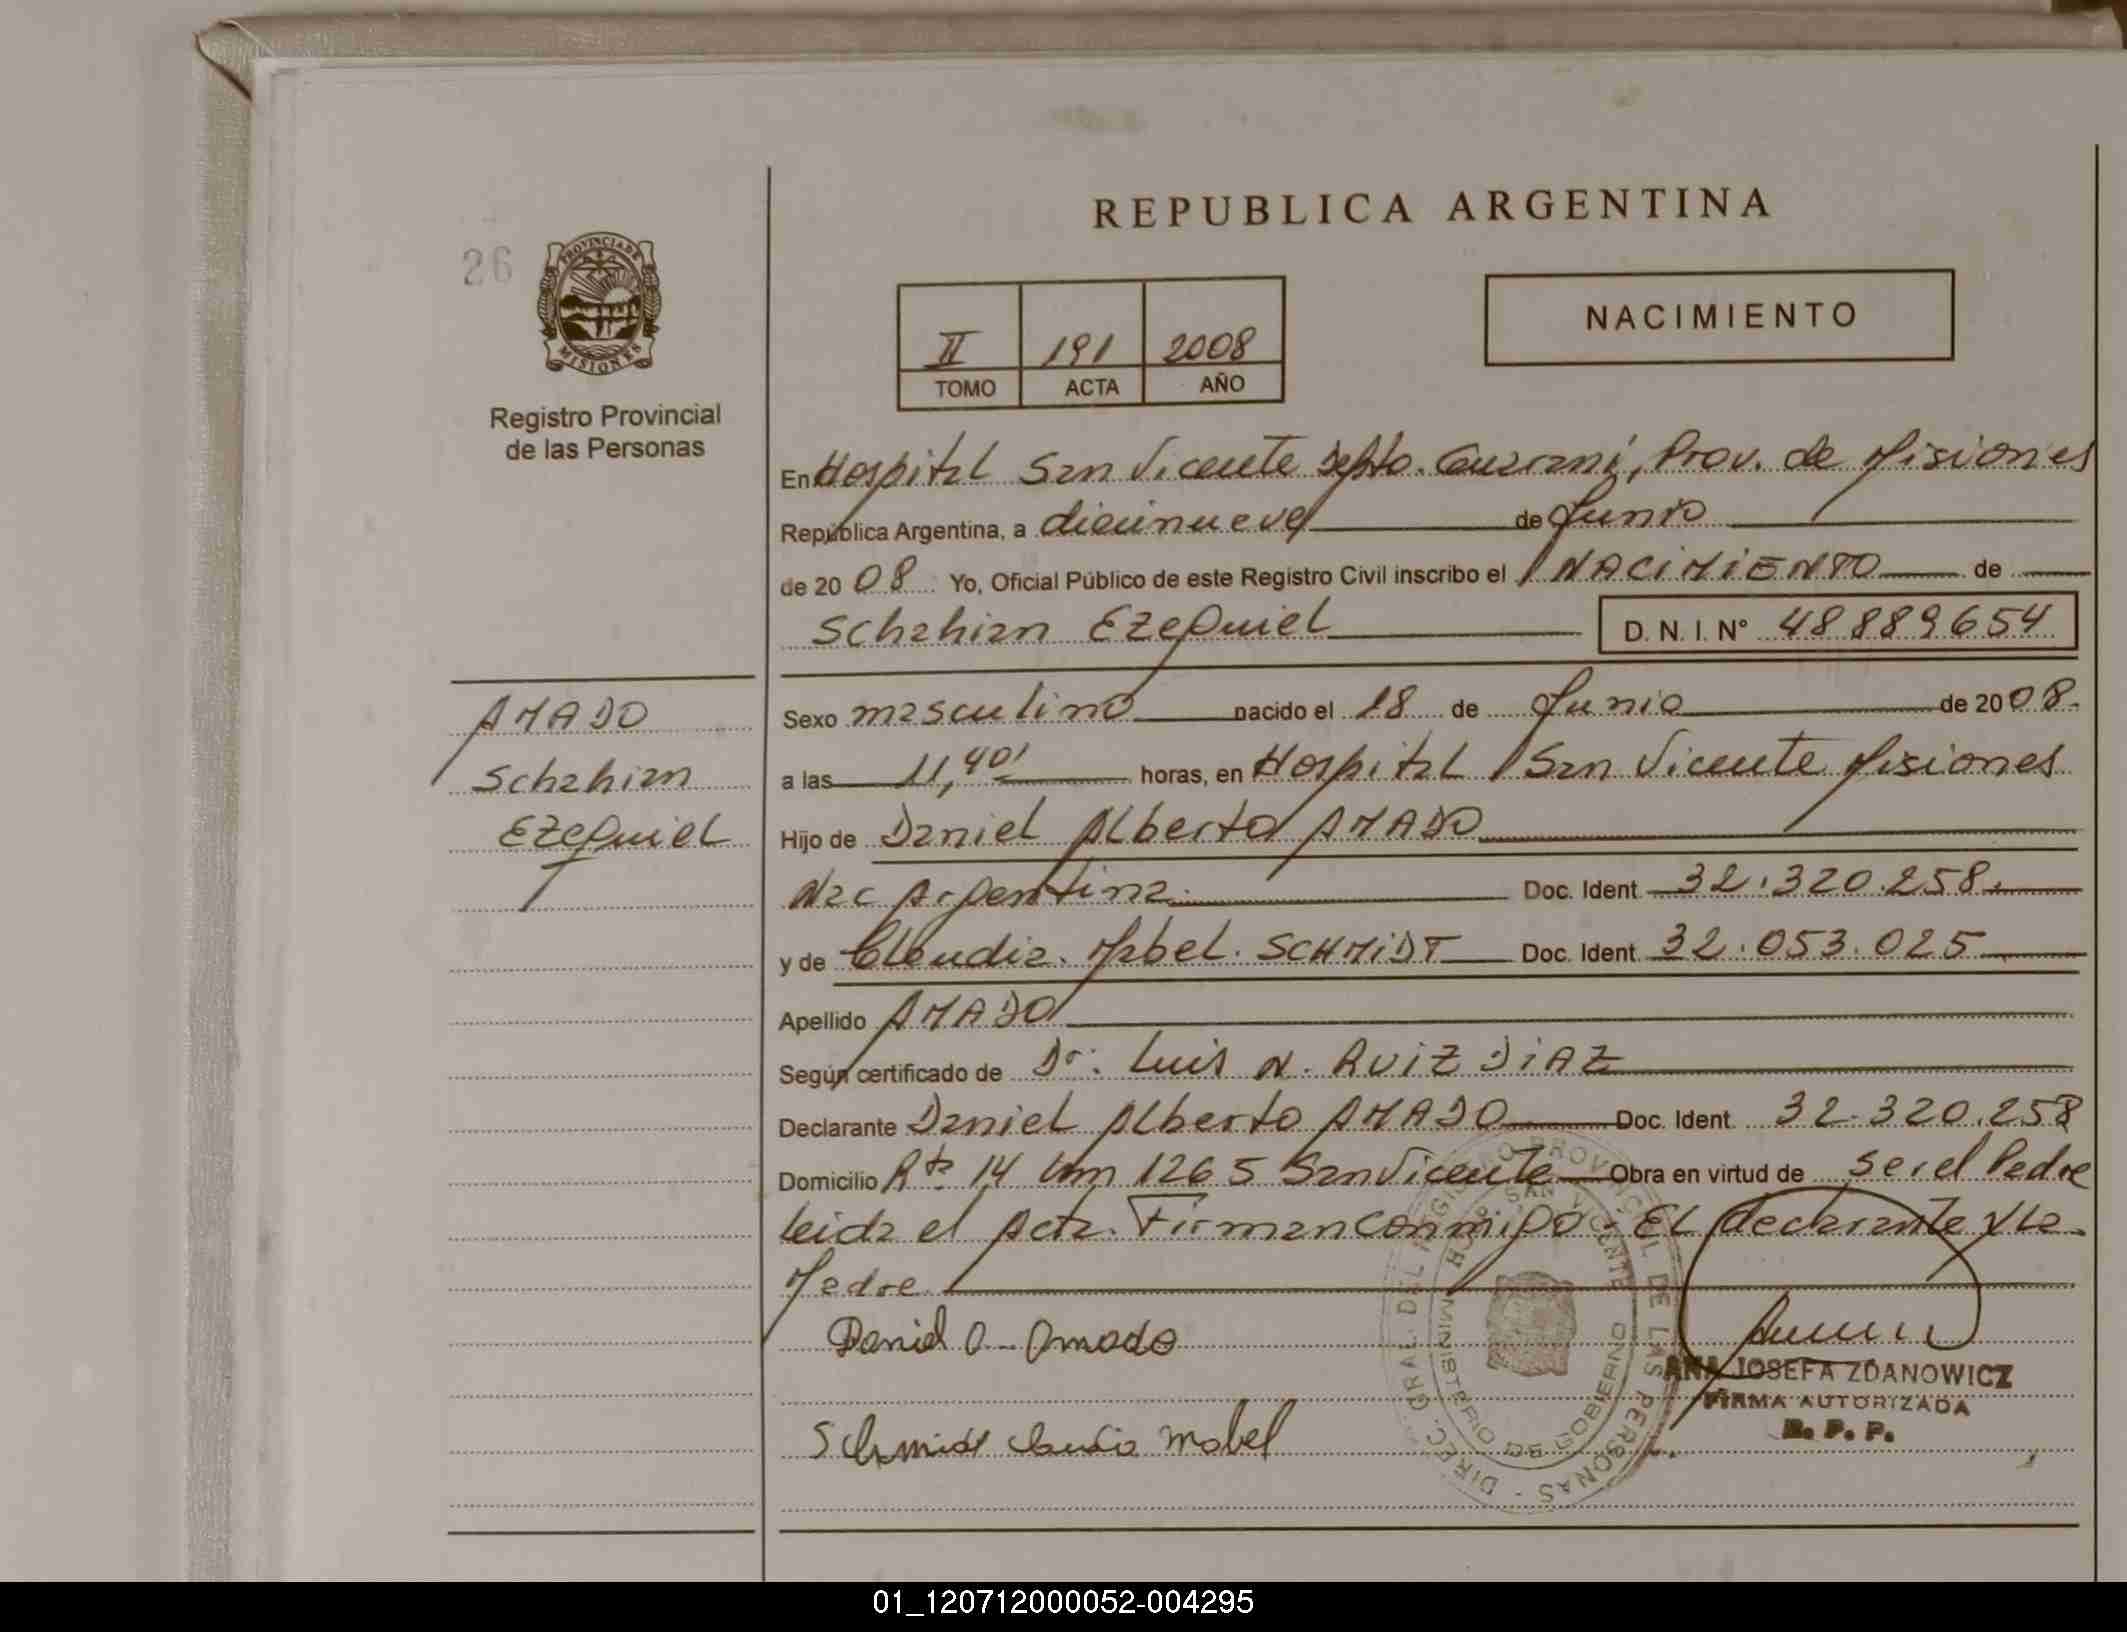 REPUBLICA ARGENTINA
26
PROVINCIA DE
MISIONES
Registro Provincial
de las Personas
II 191 2008
TOMO ACTA AÑO
NACIMIENTO
En Hospital San Vicente Depto. Guarani, Prov. de Misiones
República Argentina, a diecinueve de Junio
de 20 08 Yo, Oficial Público de este Registro Civil inscribo el NACIMIENTO de
Schahian Ezequiel D. N. I. Nº 48889654
AMADO
Schahian
Ezequiel
Sexo masculino nacido el 18 de Junio de 20 08.
a las 11,40' horas, en Hospital San Vicente Misiones
Hijo de Daniel Alberto AMADO
Nac Argentina. Doc. Ident. 32.320.258.
y de Claudia. Mabel. SCHMIDT Doc. Ident. 32.053.025
Apellido AMADO
Según certificado de Dr. Luis N. RUIZ DIAZ
Declarante Daniel Alberto AMADO Doc. Ident. 32.320.258
Domicilio Rta 14 km 1265 San Vicente Obra en virtud de ser el Padre
leida el Acta. Firman conmigo. El declarante y La
Madre
Daniel A. Amado
Schmidt Claudia Mabel
DIREC. GRAL. DEL REGISTRO PROVINCIAL DE LAS PERSONAS
MINISTERIO DE GOBIERNO
SAN VICENTE
ANA JOSEFA ZDANOWICZ
FIRMA AUTORIZADA
R. P. P.
01_120712000052-004295